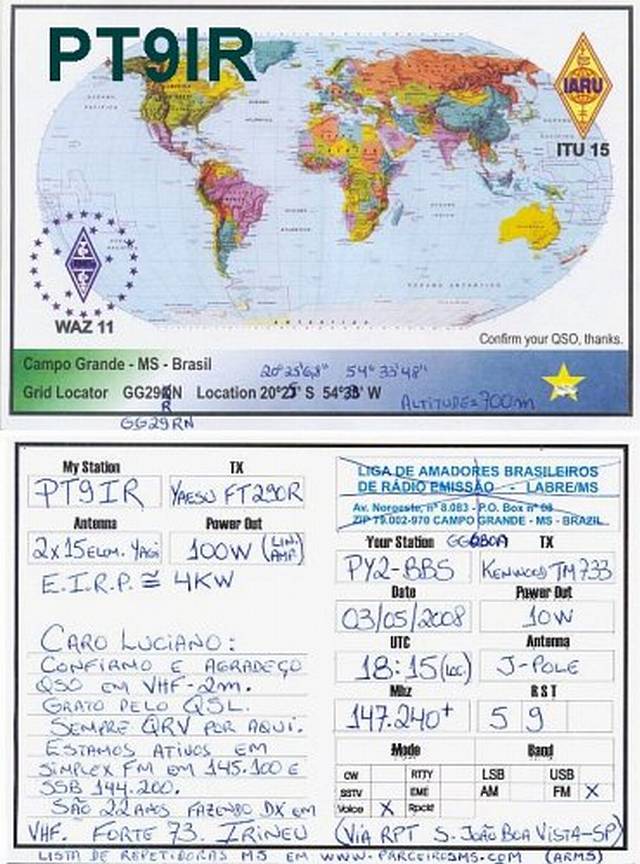 PT9IR
IARU
ITU 15
WAZ 11
Confirm your QSO, thanks.
Campo Grande - MS - Brasil
20° 25' 68" 54° 33' 48"
Grid Locator GG29 N Location 20°2 ' S 54°3 ' W
R
ALTITUDE=700m
GG29RN
My Station TX
PT9IR YAESU FT290R
Antenna Power Out
2x15 ELEM. YAGI 100W (LIN. AMP.)
E.I.R.P. ≅ 4KW
CARO LUCIANO:
CONFIRMO E AGRADEÇO
QSO EM VHF-2m.
GRATO PELO QSL.
SEMPRE QRV POR AQUI.
ESTAMOS ATIVOS EM
SIMPLEX FM EM 145.100 E
SSB 144.200.
SÃO 22 ANOS FAZENDO DX EM
VHF. FORTE 73. IRINEU
LIGA DE AMADORES BRASILEIROS
DE RÁDIO EMISSÃO - LABRE/MS
Av. Noroeste, nº 8.083 - P.O. Box nº 08
ZIP 79.002-970 CAMPO GRANDE - MS - BRAZIL
Your Station TX
PY2-BBS KENWOOD TM733
Date Power Out
03/05/2008 10W
UTC Antenna
18:15 (LOC) J-POLE
Mhz R S T
147.240+ 5 9
Mode Band
CW RTTY LSB USB
SSTV EME AM FM X
Voice X Rpckt
(VIA RPT S. JOÃO BOA VISTA-SP)
LISTA DE REPETIDORAS MS EM WWW.PARCEIROSMS.COM (ARMS)